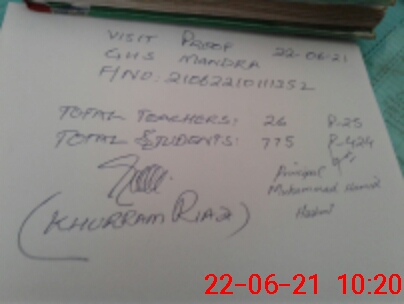 VISIT PROOF 22-06-21
GHS MANDRA
F/NO: 21062210111252
TOTAL TEACHERS: 26 P-25
TOTAL STUDENTS: 775 P-424
Principal
Muhammad
(KHURRAM RIAZ)
22-06-21 10:20